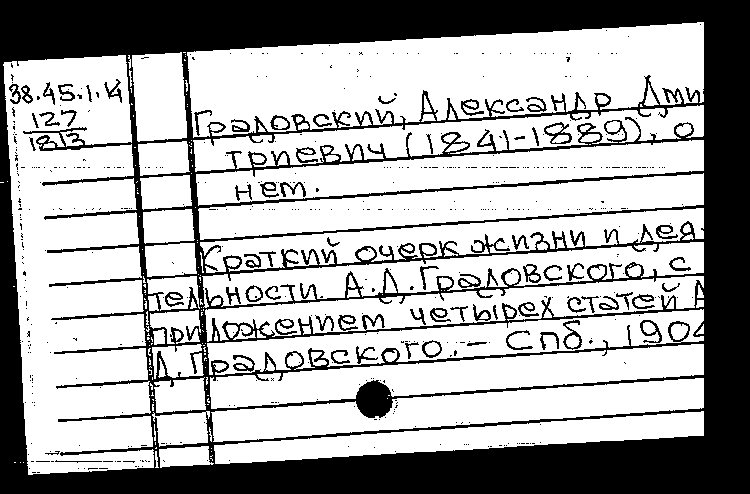 38.45.1.14
127
1813
Градовский, Александр Дми
триевич (1841-1889), о
нем.
Краткий очерк жизни и дея-
тельности А.Д.Градовского, с
приложением четырех статей А
Д.Градовского. – Спб., 1904